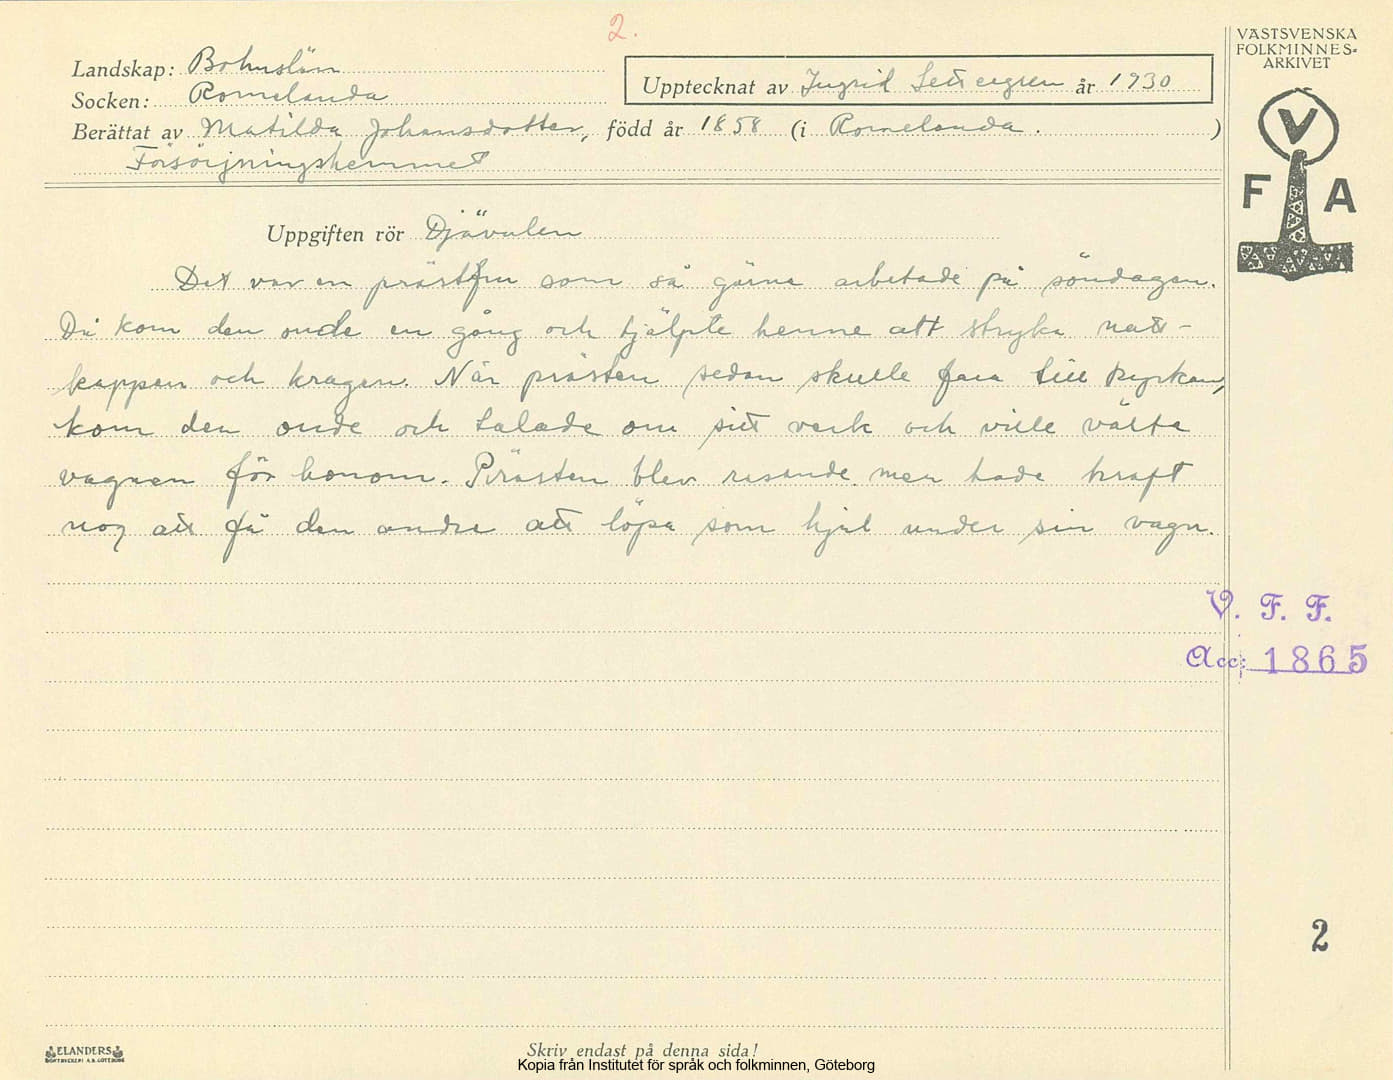 2.
VÄSTSVENSKA
FOLKMINNES-
ARKIVET
Landskap: Bohuslän
Socken: Romelanda
Upptecknat av Ingrid Settergren år 1930
Berättat av Matilda Johansdotter, född år 1858 (i Romelanda. )
Försörjningshemmet
V
F A
Uppgiften rör Djävulen
Det var en prästfru som så gärna arbetade på söndagen.
Då kom den onde en gång och hjälpte henne att stryka natt-
kappan och kragen. När prästen sedan skulle fara till kyrkan,
kom den onde och talade om sitt verk och ville välta
vagnen för honom. Prästen blev rasande men hade kraft
nog att få den andre att löpa som hjul under sin vagn.
V. F. F.
Acc: 1865
2
ELANDERS
BOKTRYCKERI A.B. GÖTEBORG
Skriv endast på denna sida!
Kopia från Institutet för språk och folkminnen, Göteborg